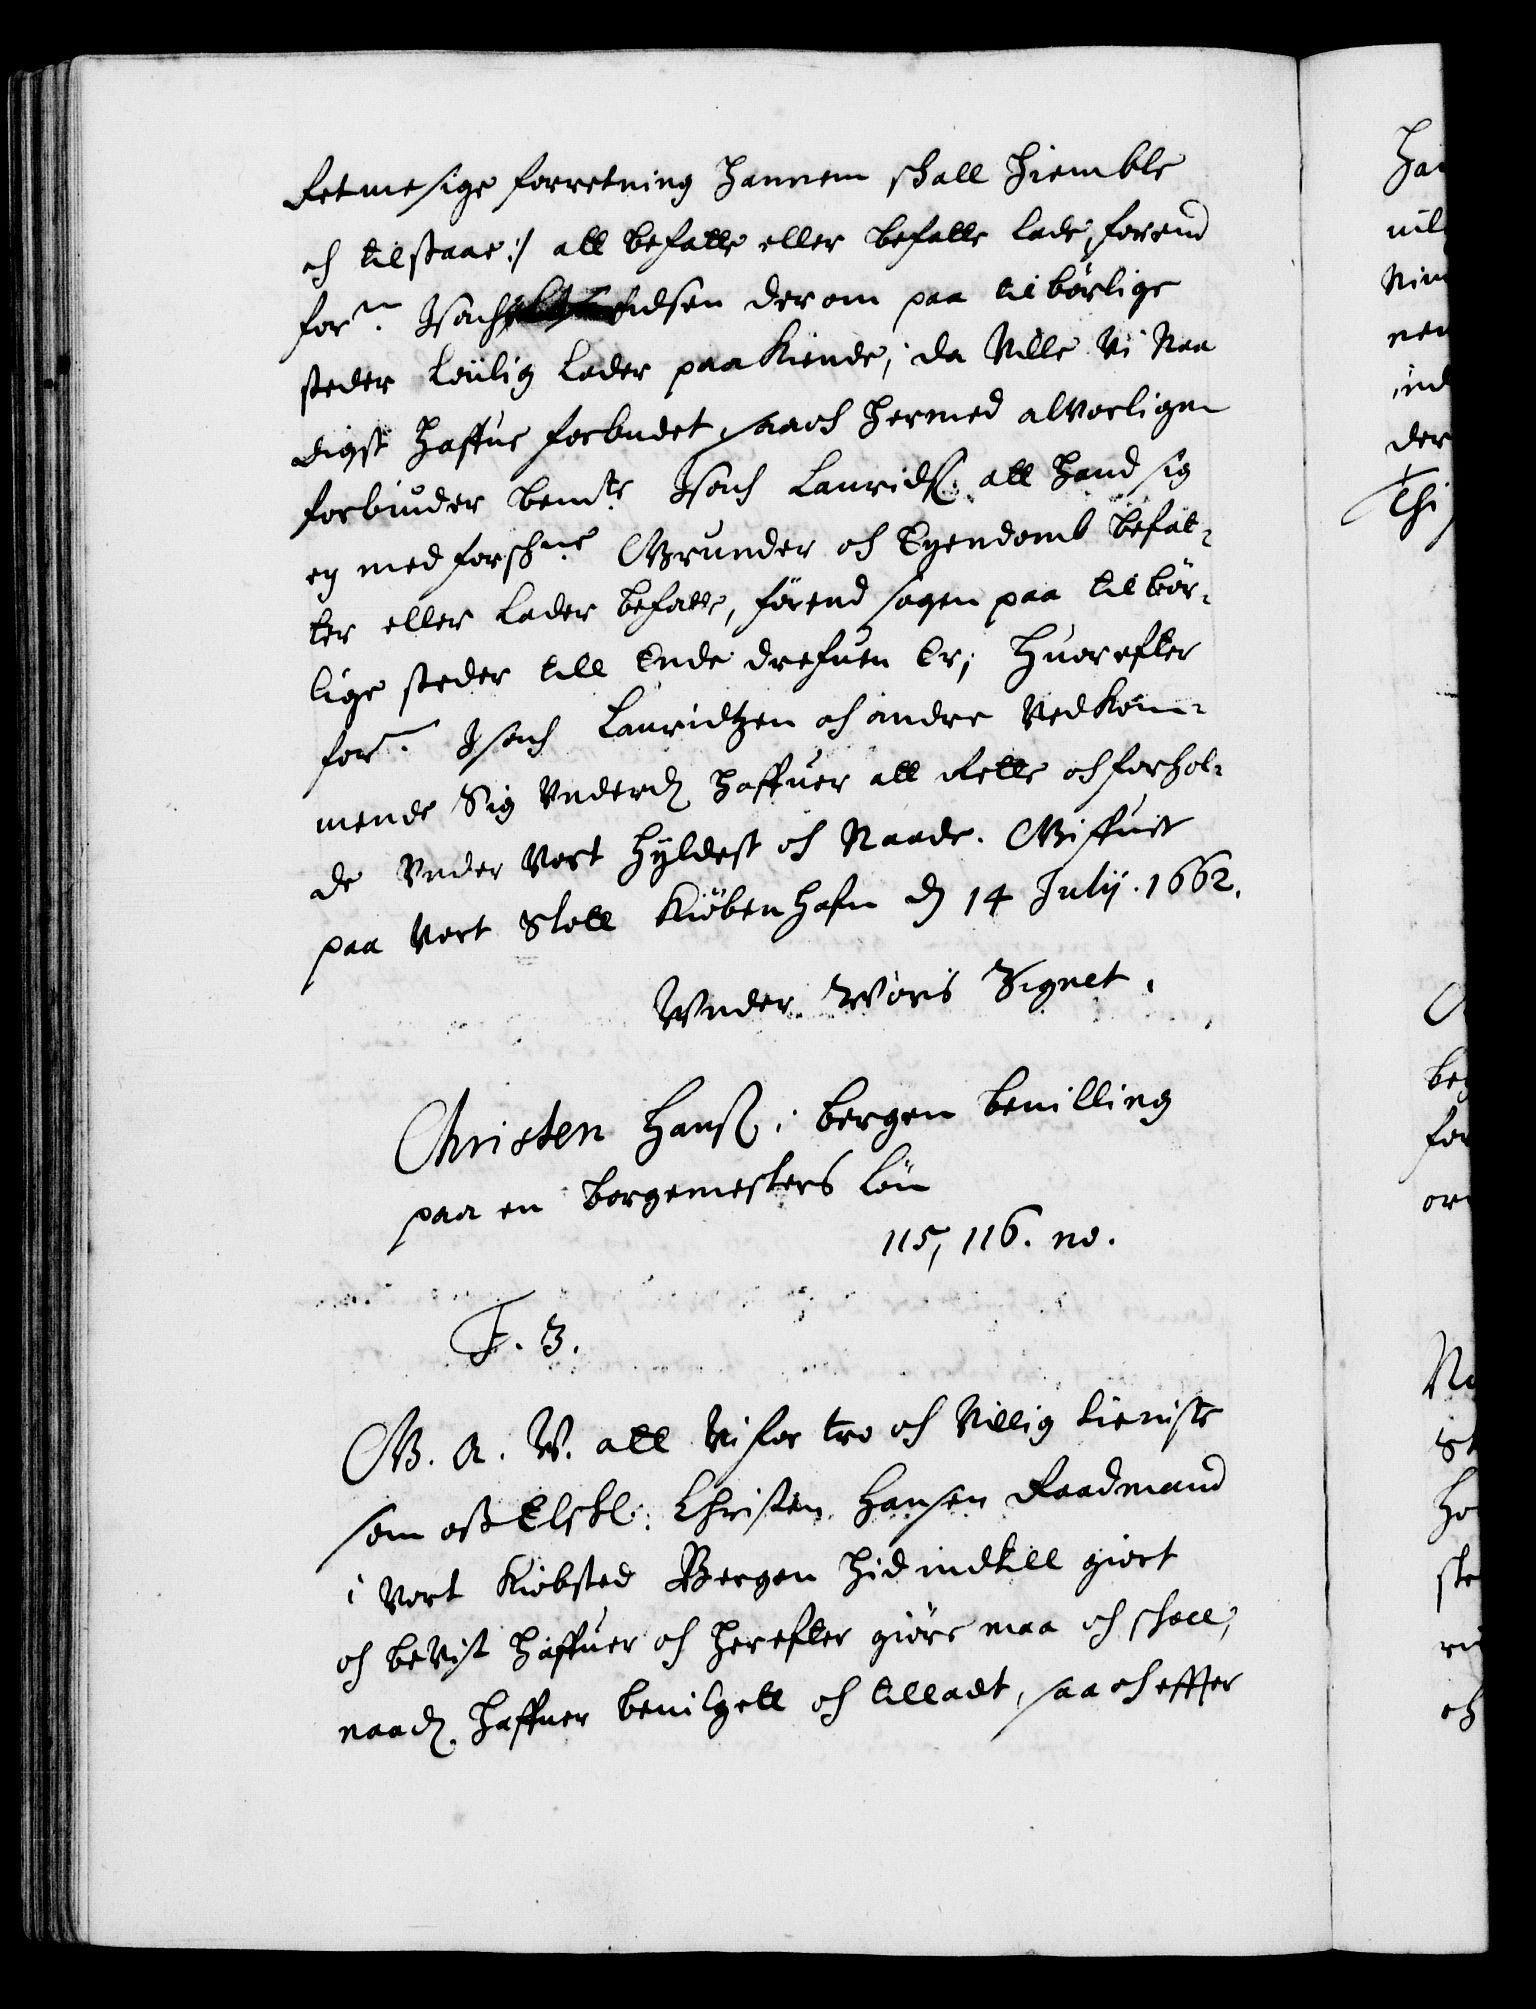 Retmesige forretning hannem schall hiemble
och tilstaae :/ att befatte eller befatte lade, forend
forn: Isach Lauridsen derom paa tilbörlige
steder lovlig lader paakiende, da Ville Vi Naa
digst haffue forbudet, saa och hermed alvorligen
forbiuder bemte Isach Lauridß: att hand sig
ey med forschne Grunder och Eyendomb befat-
ter eller lader befatte, förend sagen paa tilbör-
lige steder till Ende drefuen Er; Huorefter
forn: Isach Lauridtzen och andre Vedkom-
mende Sig Vnderd: haffuer att Rette och forhol-
de Vnder Vort hyldest och Naade. Giffuet
paa Vort Slott Kiöbenhafn d: 14 Julij. 1662.
Wnder Woris Signet.
Christen Hanß: i bergen bevilling
paa en borgemesters lön
115, 116. no.
F. 3.
G. A. W. att Vi for tro och Villig tieniste
som oß Elskl: Christen Hansen Raadmand
i Vort Kiöbsted Bergen hid indtill giort
och bevist haffuer och herefter giöre maa och schall,
naad: haffuer bevilgett och tilladt, saa och effter